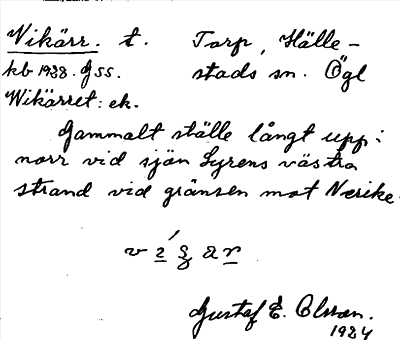 Vikärr. t. Torp, Hälle-
kb 1928. G ss. stads sn. Ögl
Wikärret: ek.
Gammalt ställe långt upp i
norr vid sjön Lyrens västra
strand vid gränsen mot Nerike.
Gustaf E. Olsson.
1924